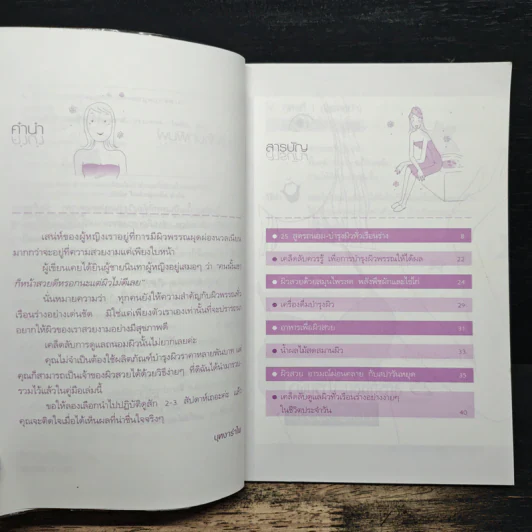 คำนำ
เสน่ห์ของผู้หญิงเราอยู่ที่การมีผิวพรรณผุดผ่องนวลเนียน
มากกว่าจะอยู่ที่ความสวยงามแค่เพียงใบหน้า
ผู้เขียนเคยได้ยินผู้ชายนินทาผู้หญิงอยู่เสมอๆ ว่า "คนนั้นสวย
ก็หน้าสวยดีหรอกนะแต่ผิวไม่ดีเลย"
นั่นหมายความว่า ทุกคนยังให้ความสำคัญกับผิวพรรณทั่ว
เรือนร่างอย่างเด่นชัด มิใช่แต่เพียงตัวเราเองเท่านั้นที่จะปรารถนา
อยากให้ผิวของเราสวยงามอย่างมีสุขภาพดี
เคล็ดลับการดูแลถนอมผิวนั้นไม่ยากเลยค่ะ
คุณไม่จำเป็นต้องใช้ผลิตภัณฑ์บำรุงผิวราคาหลายพันบาท แต่
คุณก็สามารถเป็นเจ้าของผิวสวยได้ด้วยวิธีง่ายๆ ที่ดิฉันได้นำมารวบ
รวมไว้แล้วในคู่มือเล่มนี้
ขอให้ลองเลือกนำไปปฏิบัติดูสัก 2-3 สัปดาห์เถอะค่ะ แล้ว
คุณจะติดใจเมื่อได้เห็นผลที่น่าชื่นใจจริงๆ
สารบัญ
บำรุงผิวทั่วเรือนร่าง 8
เคล็ดลับควรรู้ เพื่อการบำรุงผิวพรรณให้ได้ผล 22
ผิวสวยด้วยสมุนไพรสด พลังพืชผักและไข่ไก่ 24
เครื่องดื่มบำรุงผิว 29
อาหารเพื่อผิวสวย
น้ำผลไม้สดสมานผิว
ผิวสวย อารมณ์ผ่อนคลาย กับสปาวันหยุด
เคล็ดลับดูแลผิวทั่วเรือนร่างอย่างง่ายๆ
ในชีวิตประจำวัน